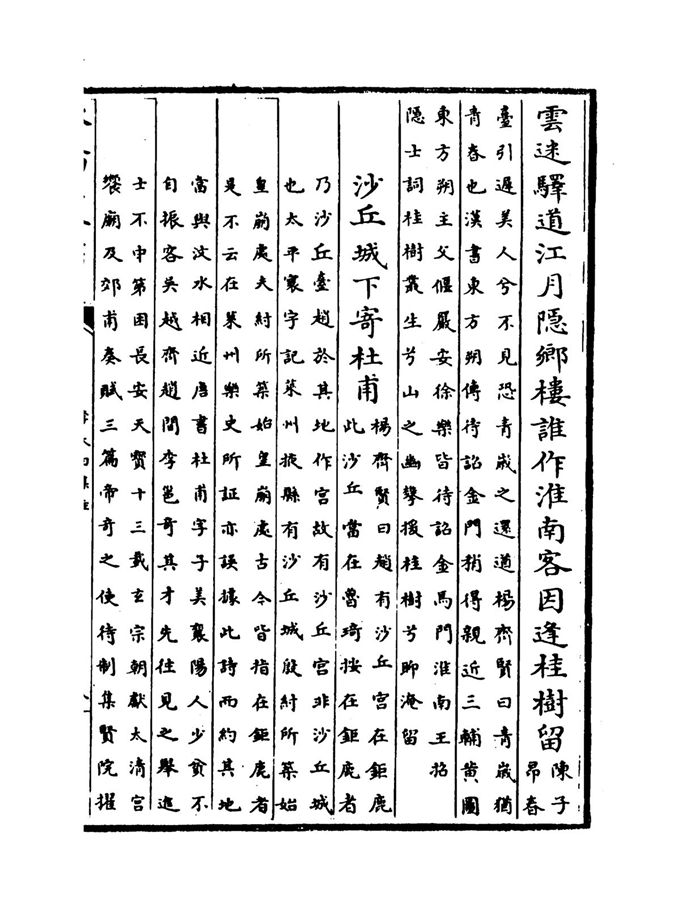 雲迷驛道江月隱鄉樓誰作淮南客因逢桂樹留陳子
昂春
臺引遲美人兮不見恐青歲之還遒楊齊賢曰青歲猶
青春也漢書東方朔傳待詔金門稍得親近三輔黃圖
東方朔主父偃嚴安徐樂皆待詔金馬門淮南王招
隱士詞桂樹叢生兮山之幽攀援桂樹兮聊淹留
沙丘城下寄杜甫
楊齊賢曰趙有沙丘宮在鉅鹿
此沙丘當在魯琦按在鉅鹿者
乃沙丘臺趙於其地作宮故有沙丘宮非沙丘城
也太平寰宇記萊州掖縣有沙丘城殷紂所築始
皇崩處夫紂所築始皇崩處古今皆指在鉅鹿者
是不云在萊州樂史所証亦誤據此詩而約其地
當與汶水相近唐書杜甫字子美襄陽人少貧不
自振客吳越齊趙間李邕奇其才先往見之舉進
士不中第困長安天寶十三載玄宗朝獻太清宮
饗廟及郊甫奏賦三篇帝奇之使待制集賢院擢